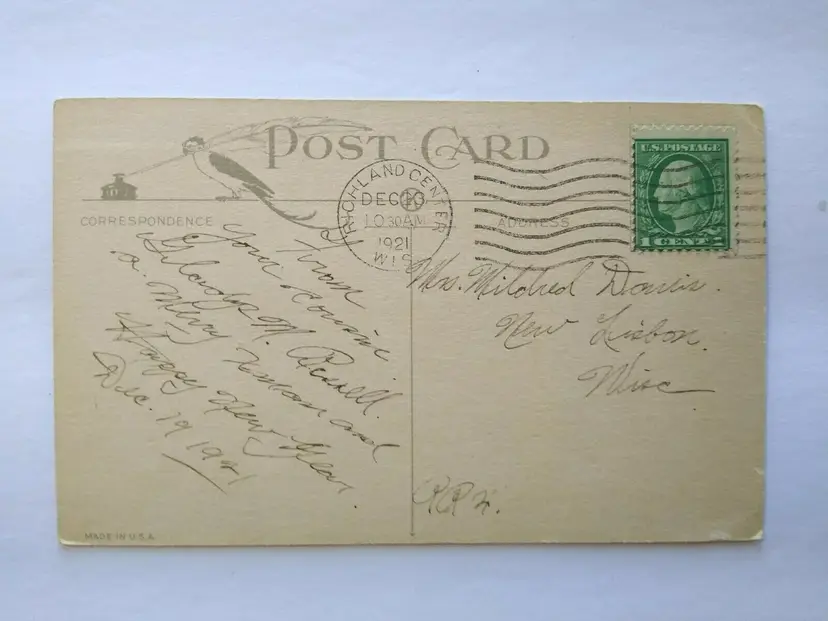 POST CARD
RICHLAND CENTER
DEC
10 30 AM
1921
WIS
U.S. POSTAGE
1 CENT 1
CORRESPONDENCE
ADDRESS
From
your cousin
Gladys M.
a. Merry Xmas and
Happy New Year.
Dec. 19 1921
Mrs. Mildred
New Lisbon.
Wisc
RR 2.
MADE IN U.S.A.